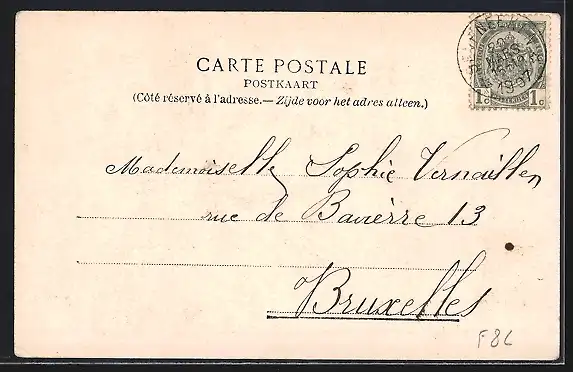 CARTE POSTALE
POSTKAART
(Côté réservé à l'adresse.— Zijde voor het adres alleen.)
1c 1c
1897
Mademoiselle Sophie Vernaillen
rue de Bavièrre 13
Bruxelles
F8C